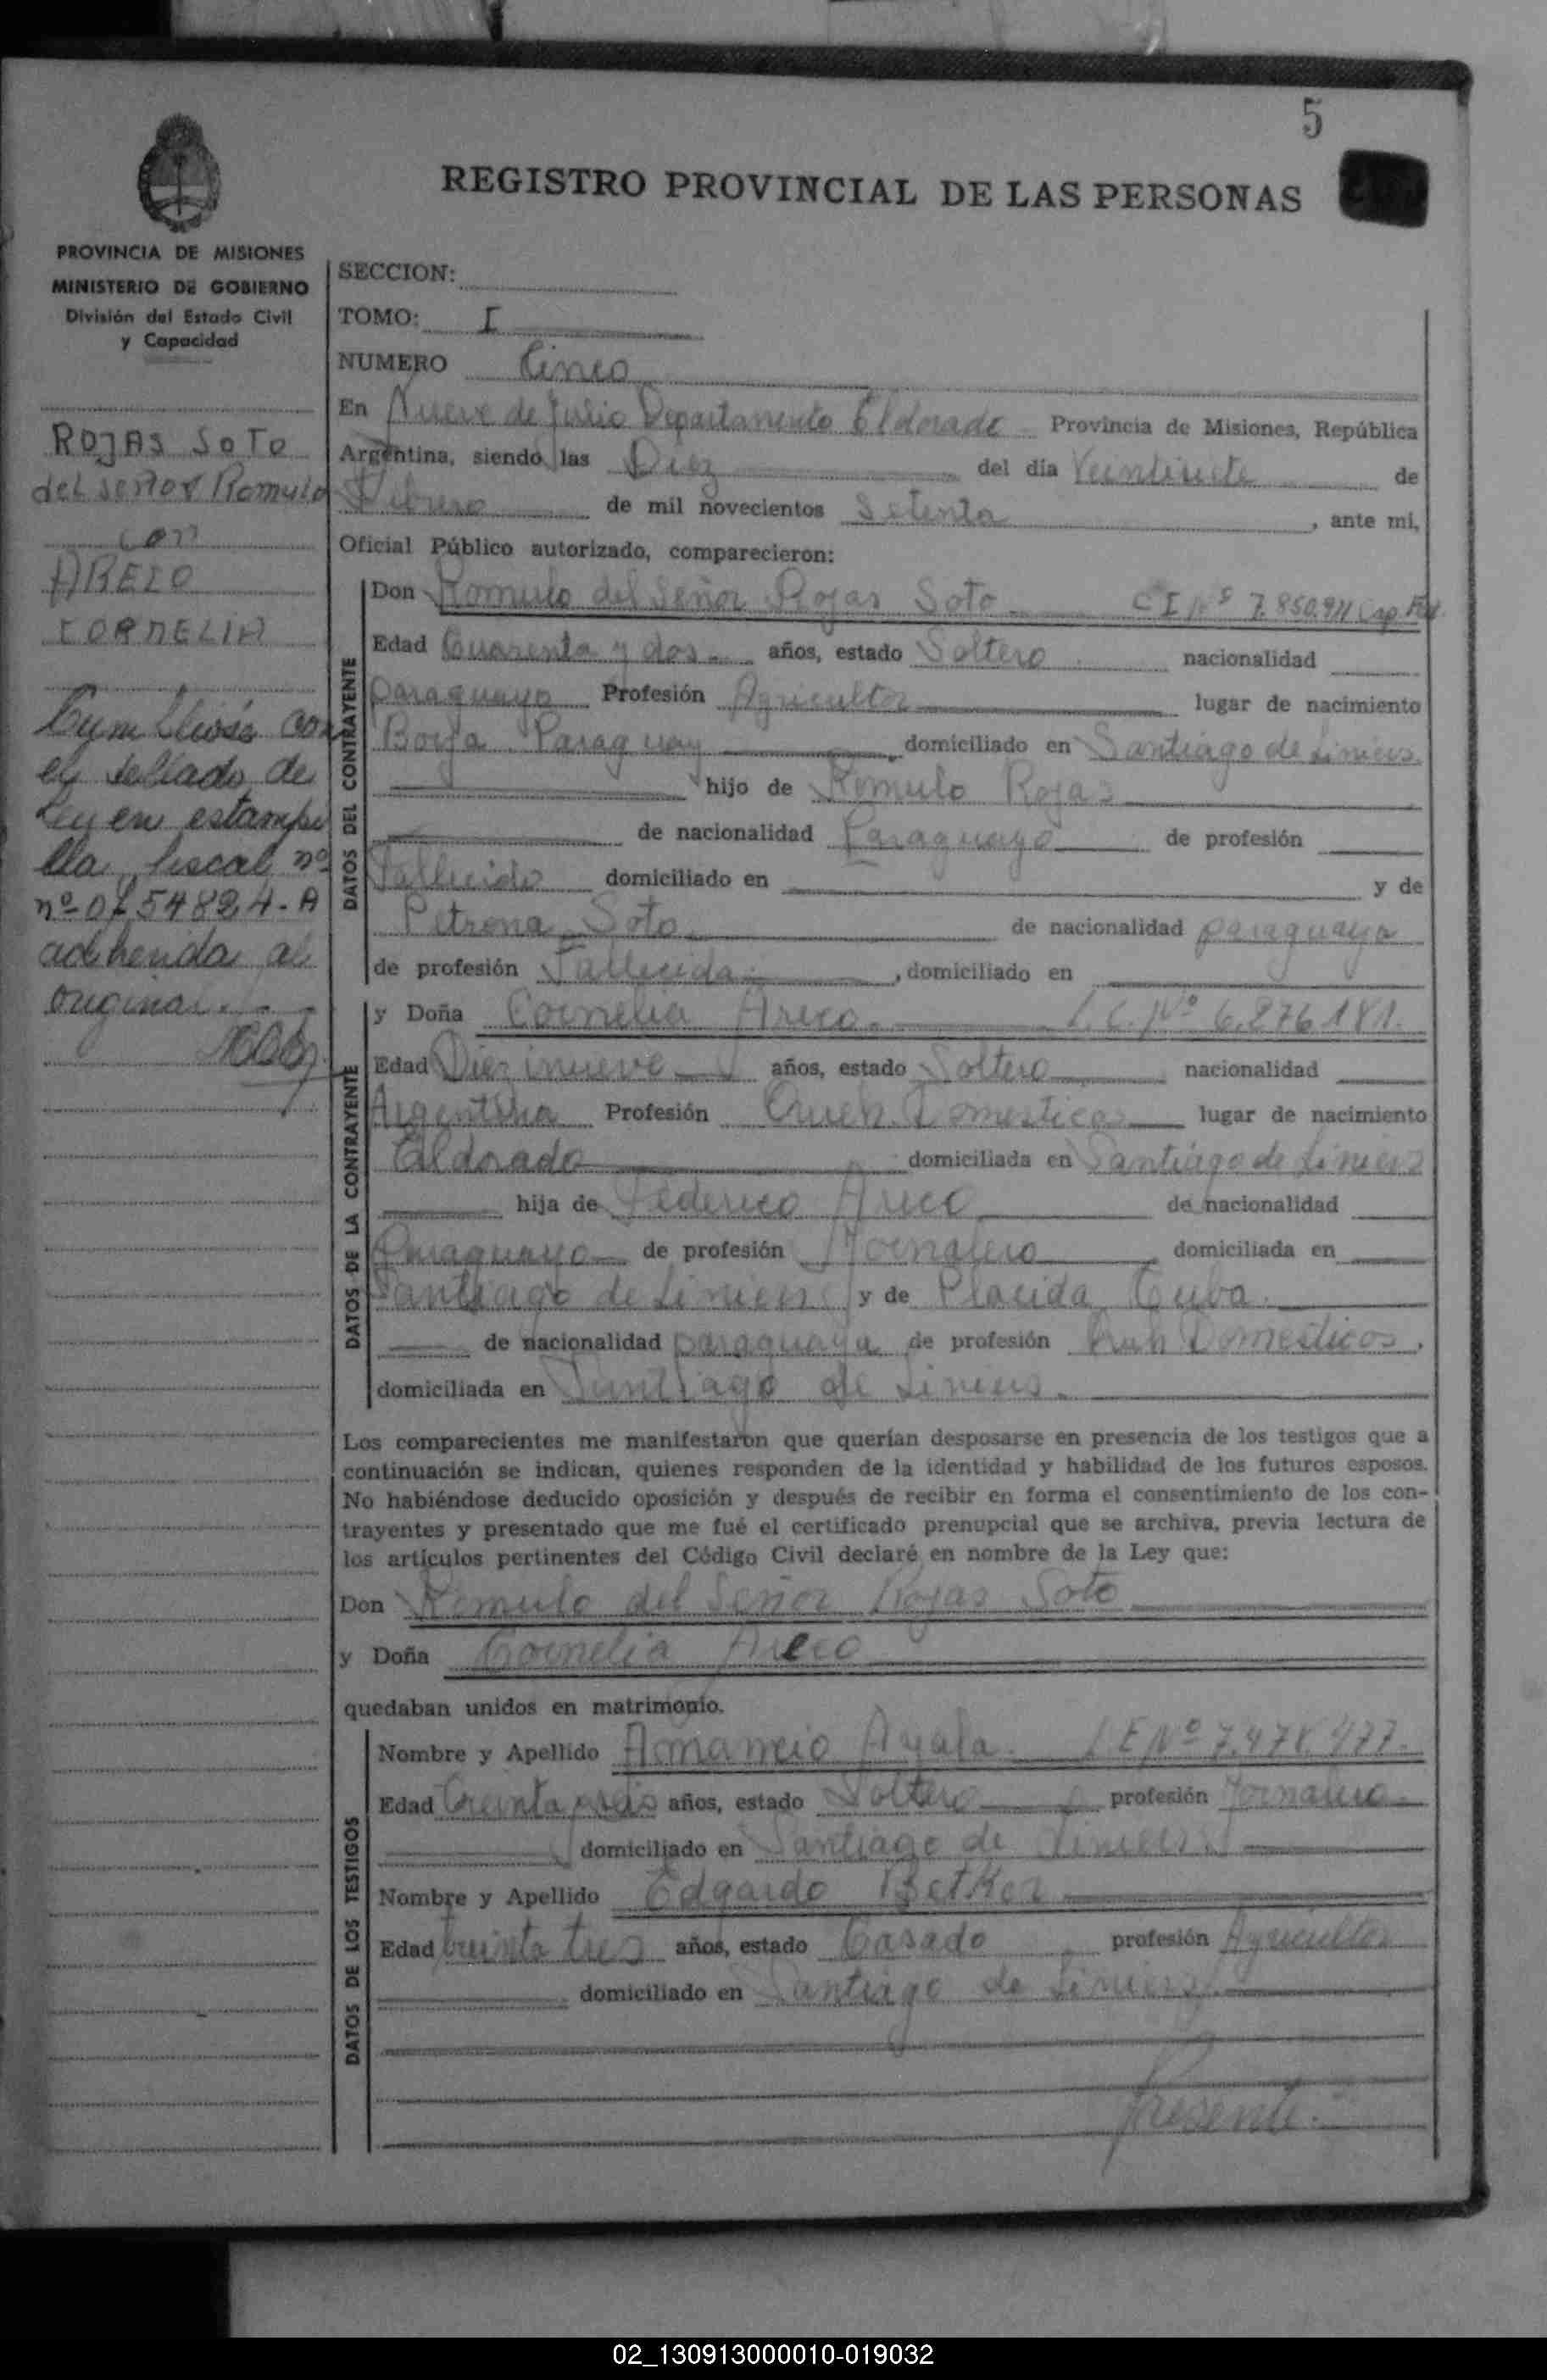 5
REGISTRO PROVINCIAL DE LAS PERSONAS
PROVINCIA DE MISIONES
MINISTERIO DE GOBIERNO
División del Estado Civil
y Capacidad
ROJAS SOTO
del señor Romulo
con
ARECO
CORNELIA
Cumplióse con
el sellado de
Ley en estampi
lla fiscal nº
adherida al
original.
SECCION:
TOMO: I
NUMERO Cinco
En Nueve de Julio Departamento Eldorado Provincia de Misiones, República
Argentina, siendo las Diez del día Veintisiete de
Febrero de mil novecientos Setenta, ante mi,
Oficial Público autorizado, comparecieron:
DATOS DEL CONTRAYENTE
Don Romulo del Señor Rojas Soto C I Nº 7.850.911 Cap. Fed.
Edad Cuarenta y dos años, estado Soltero nacionalidad
paraguayo Profesión Agricultor lugar de nacimiento
Borja Paraguay, domiciliado en Santiago de Liniers
hijo de Romulo Rojas
de nacionalidad Paraguayo de profesión
Fallecido domiciliado en y de
Petrona Soto de nacionalidad paraguaya
de profesión Fallecida, domiciliado en
DATOS DE LA CONTRAYENTE
y Doña Cornelia Areco. L.C. Nº 6.876.181.
Edad Diezinueve años, estado Soltera nacionalidad
Argentina Profesión Queh. Domesticos lugar de nacimiento
Eldorado domiciliada en Santiago de Liniers
hija de Federico Areco de nacionalidad
Paraguayo de profesión Jornalero domiciliada en
Santiago de Liniers y de Placida Cuba.
de nacionalidad paraguaya de profesión Queh Domesticos,
domiciliada en Santiago de Liniers.
Los comparecientes me manifestaron que querían desposarse en presencia de los testigos que a
continuación se indican, quienes responden de la identidad y habilidad de los futuros esposos.
No habiéndose deducido oposición y después de recibir en forma el consentimiento de los con-
trayentes y presentado que me fué el certificado prenupcial que se archiva, previa lectura de
los artículos pertinentes del Código Civil declaré en nombre de la Ley que:
Don Romulo del Señor Rojas Soto
y Doña Cornelia Areco
quedaban unidos en matrimonio.
DATOS DE LOS TESTIGOS
Nombre y Apellido Amancio Ayala. L E Nº
Edad treinta y seis años, estado Soltero profesión Jornalero
domiciliado en Santiago de Liniers.
Nombre y Apellido Edgardo Betker
Edad treinta tres años, estado Casado profesión Agricultor
domiciliado en Santiago de Liniers.
Presente.
02_130913000010-019032